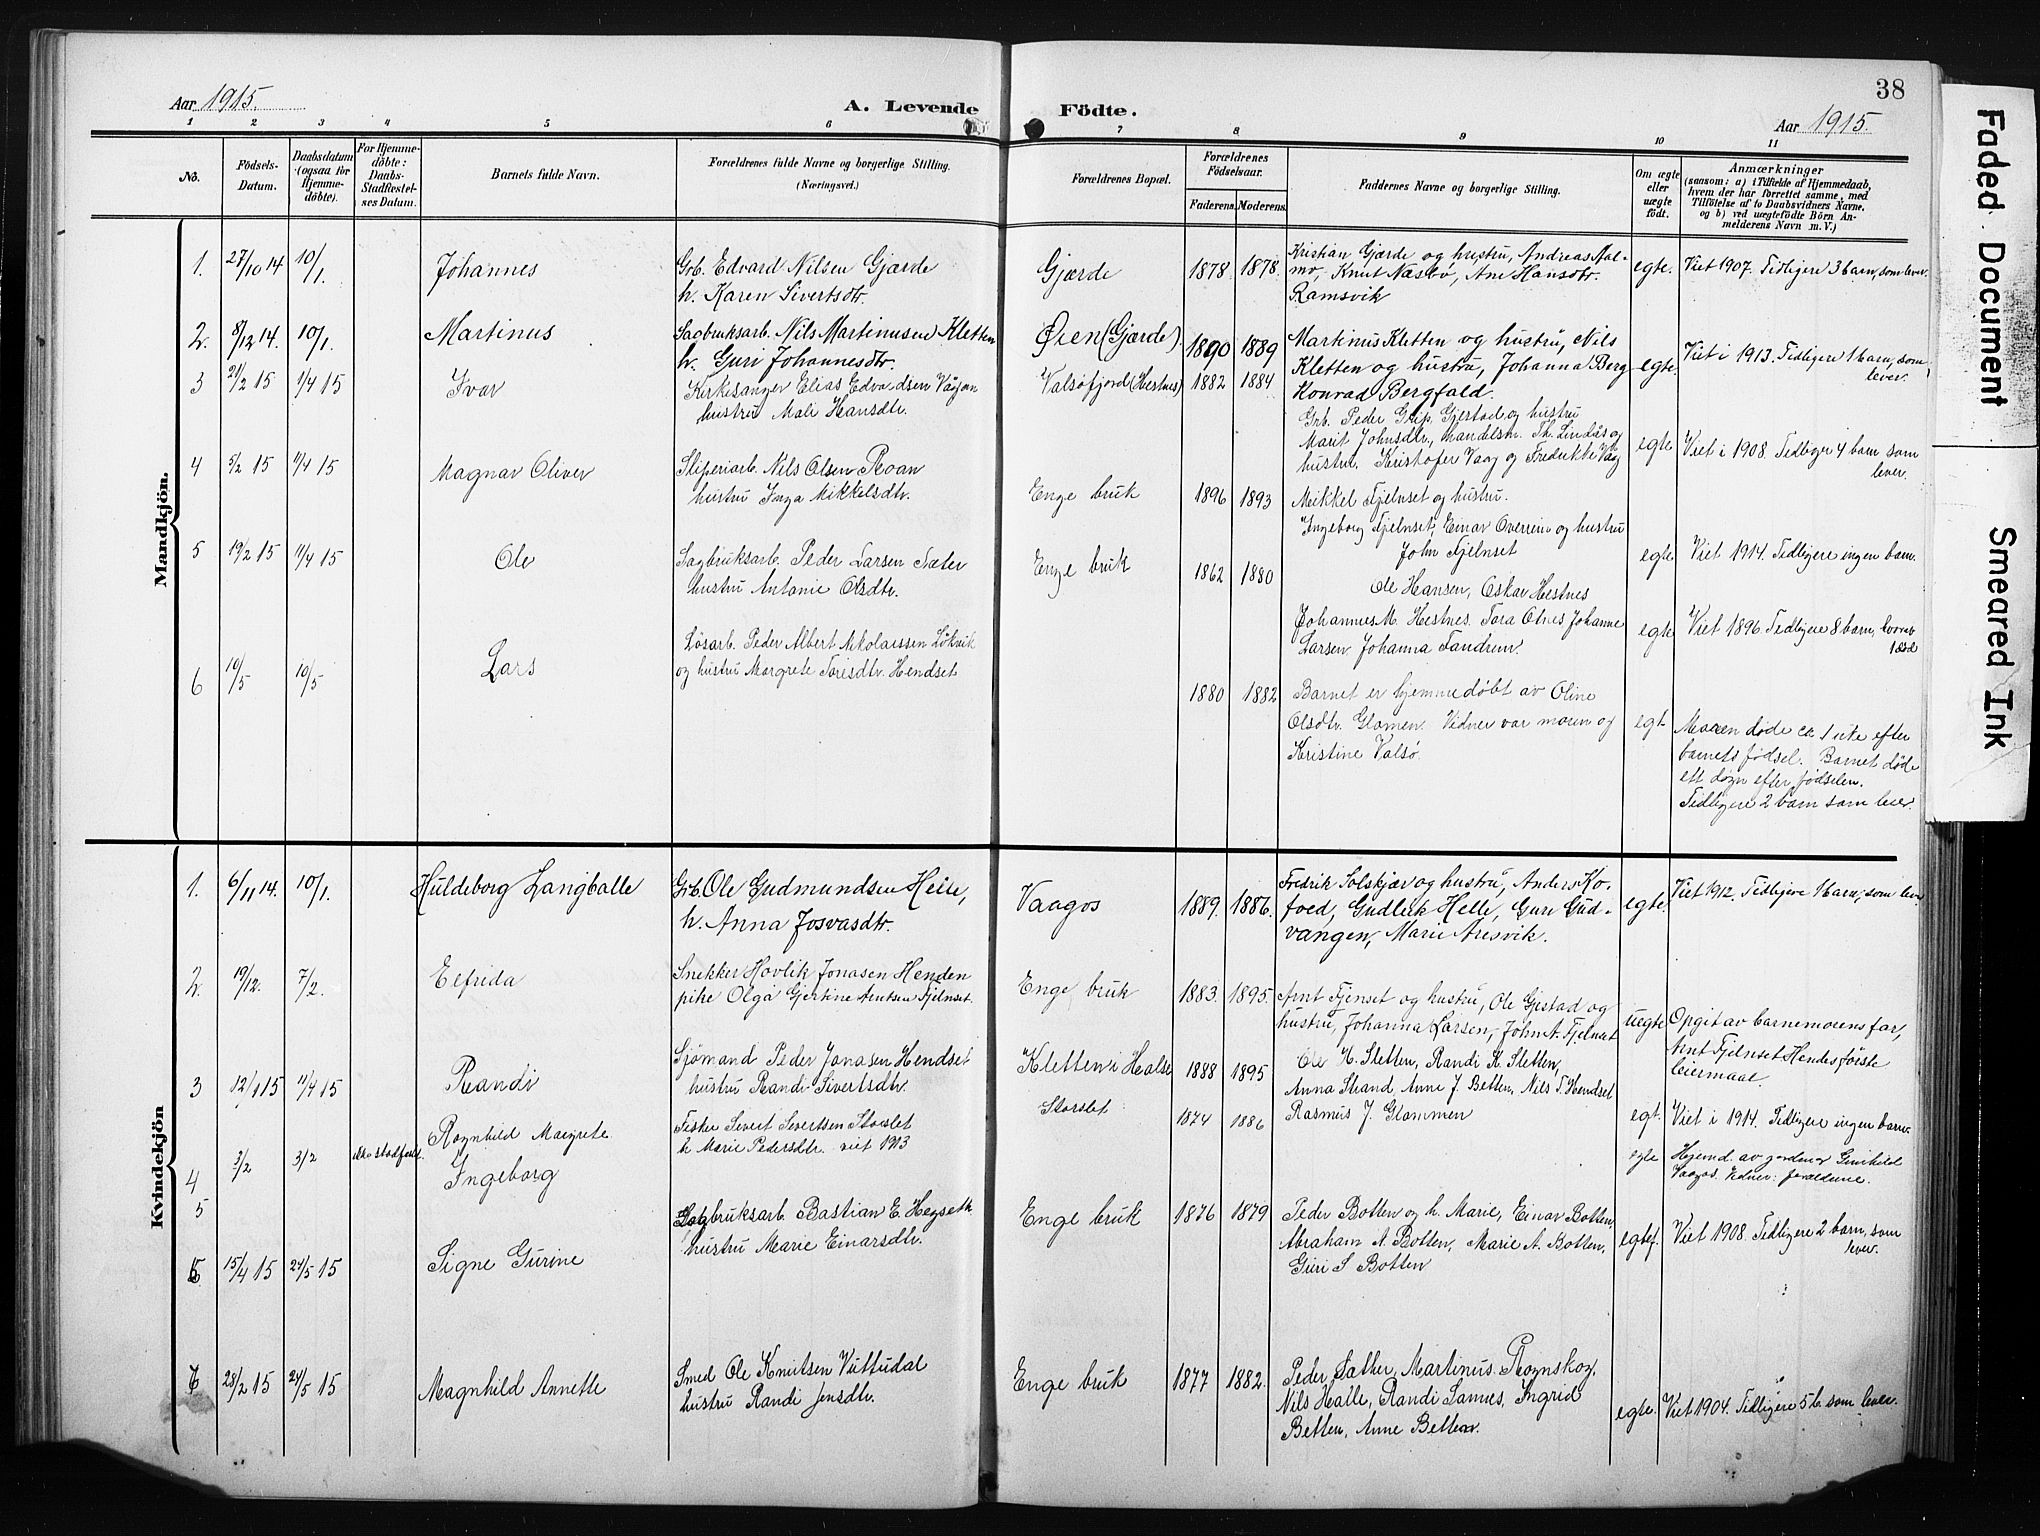 38
Aar 1915.
A. Levende Födte.
Aar 1915.
1 2 3 4 5 6 7 8 9 10 11
No.
Födsels-
Datum.
Daabsdatum
(ogsaa for
Hjemme-
döbte).
For Hjemme-
döbte:
Daabs-
Stadfæstel-
ses Datum.
Barnets fulde Navn.
Forældrenes fulde Navne og borgerlige Stilling.
(Næringsvei.)
Forældrenes Bopæl.
Forældrenes
Födselsaar.
Faderens. Moderens.
Faddernes Navne og borgerlige Stilling.
Om ægte
eller
uægte
födt.
Anmærkninger
(saasom: a) i Tilfælde af Hjemmedaab,
hvem der har forrettet samme, med
Tilföielse af to Daabsvidners Navne,
og b) ved uægtefödte Börn An-
melderens Navn m. V.)
Mandkjön.
1. 27/10 14 10/1. Johannes
Grb. Edvard Nilsen Gjærde
h. Karen Sivertsdtr.
Gjærde 1878. 1878.
Kristian Gjærde og hustru, Andreas Aal-
mo, Knut Næsbø, Ane Hansdtr.
Ramsvik
egte. Viet 1907. Tidligere 3 barn, som lever.
2. 8/12 14. 10/1. Martinus
Sagbruksarb. Nils Martinusen Kletten
h. Guri Johannesdtr.
Øien (Gjærde). 1890 1889
Martinus Kletten og hustru, Nils
Kletten og hustru, Johanna Berg
Konrad Bergfald.
egte. Viet i 1913. Tidligere 1 barn, som
lever.
3 21/2 15 11/4 15 Ivar
Kirkesanger Elias Edvardsen Vågan
hustru Mali Hansdtr.
Valsøfjord (Hestnes) 1882 1884
Grb. Peder Grip, Gjerstad og hustru
Marit Johnsdtr., handelsm. Th. Lindås og
hustru. Kristofer Vaag og Fredrikke Vaag
egte Viet i 1908. Tidligere 4 barn som
lever.
4 5/2 15 11/4 15 Magnar Oliver
Sliperiarb. Nils Olsen Roan
hustru Inga Mikkelsdtr.
Enge bruk 1896 1893
Mikkel Fjelnset og hustru.
Ingeborg Fjelnset, Einar Overrein og hustru
John Fjelnset
egte Viet 1914. Tidligere ingen barn.
5 19/2 15 11/4 15 Ole
Sagbruksarb. Peder Larsen Sæter
hustru Antonie Olsdtr.
Enge bruk 1862 1880
Ole Hansen, Oskar Hestnes
Johannes M. Hestnes. Tora Otnes Johanne
Larsen, Johanna Tandrem.
egte Viet 1896. Tidligere 8 barn, hvorav
1 død
6 10/5 10/5 Lars
Løsarb. Peder Albert Nikolaissen Løkvik
og hustru Margrete Toresdtr. Hendset
1880 1882
Barnet er hjemmedøbt av Oline
Olsdtr. Glamen. Vidner var moren og
Kristine Valsø
egt. Moren døde ca 1 uke efter
barnets fødsel. Barnet døde
ett døgn efter fødselen.
Tidligere 2 barn som lever.
Kvindekjön
1. 6/11 14. 10/1. Huldeborg Langballe
Grb. Ole Gudmundsen Helle,
h. Anna Josvasdtr.
Vaagos 1889. 1886.
Fredrik Solskjær og hustru, Anders Ko-
foed, Gudleik Helle, Guri Gud-
vangen, Marie Aresvik.
egte. Viet 1912. Tidligere 1 barn, som lever
2. 19/12. 7/2. Elfrida
Snekker Hovlik Jonasen Henden
pike Olga Gjertine Arntsen Fjelnset.
Enge bruk 1883. 1895.
Arnt Fjenset og hustru, Ole Gjestad og
hustru, Johanna Larsen, John A. Fjelnset
uegte Opgit av barnemorens far,
Arnt Fjelnset. Hendes første
leiermaal.
3 12/1 15 11/4 15 Randi
Sjømand Peder Jonasen Hendset
hustru Randi Sivertsdtr.
Kletten i Halse 1888 1895
Ole H. Sletten, Randi K. Sletten,
Anna Strand, Anne J. Betten, Nils T. Hendset
Rasmus J. Glammen
egt. Viet i 1914. Tidligere ingen barn.
4 3/2 3/2 ikke stadfest. Ragnhild Margrete
Ingeborg
Fisker Severt Severtsen Storslet
h Marie Pedersdtr. viet 1913
Storslet 1874 1886
egte Hjemd. av jordmor Gunhild
Vaagos. Vidner: forældrene.
5
5 15/4 15 24/5 15 Signe Gurine
Sagbruksarb. Bastian E. Hegseth
hustru Marie Einarsdtr.
Enge bruk 1876 1879
Peder Botten og h. Marie, Einar Botten,
Abraham A. Botten, Marie A. Botten,
Guri S Botten
egtef. Viet 1908. Tidligere 2 barn, som
lever.
6 28/2 15 24/5 15 Magnhild Annette
Smed Ole Knutsen Vuttudal
hustru Randi Jensdtr.
Enge bruk 1877 1882.
Peder Sæther, Martinus Rognskog,
Nils Halle, Randi Sannes, Ingrid
Betten, Anne Betten.
egte. Viet 1904. Tidligere 5 b. som lever.
Faded Document
Smeared Ink